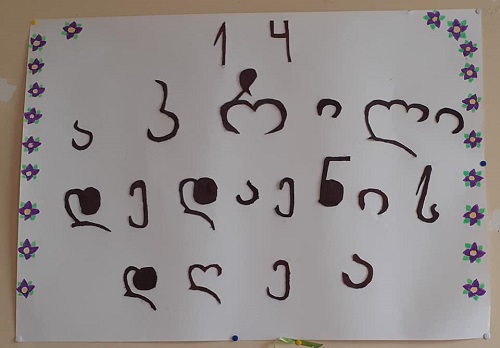 14
აპრილი
დედაენის
დღეა